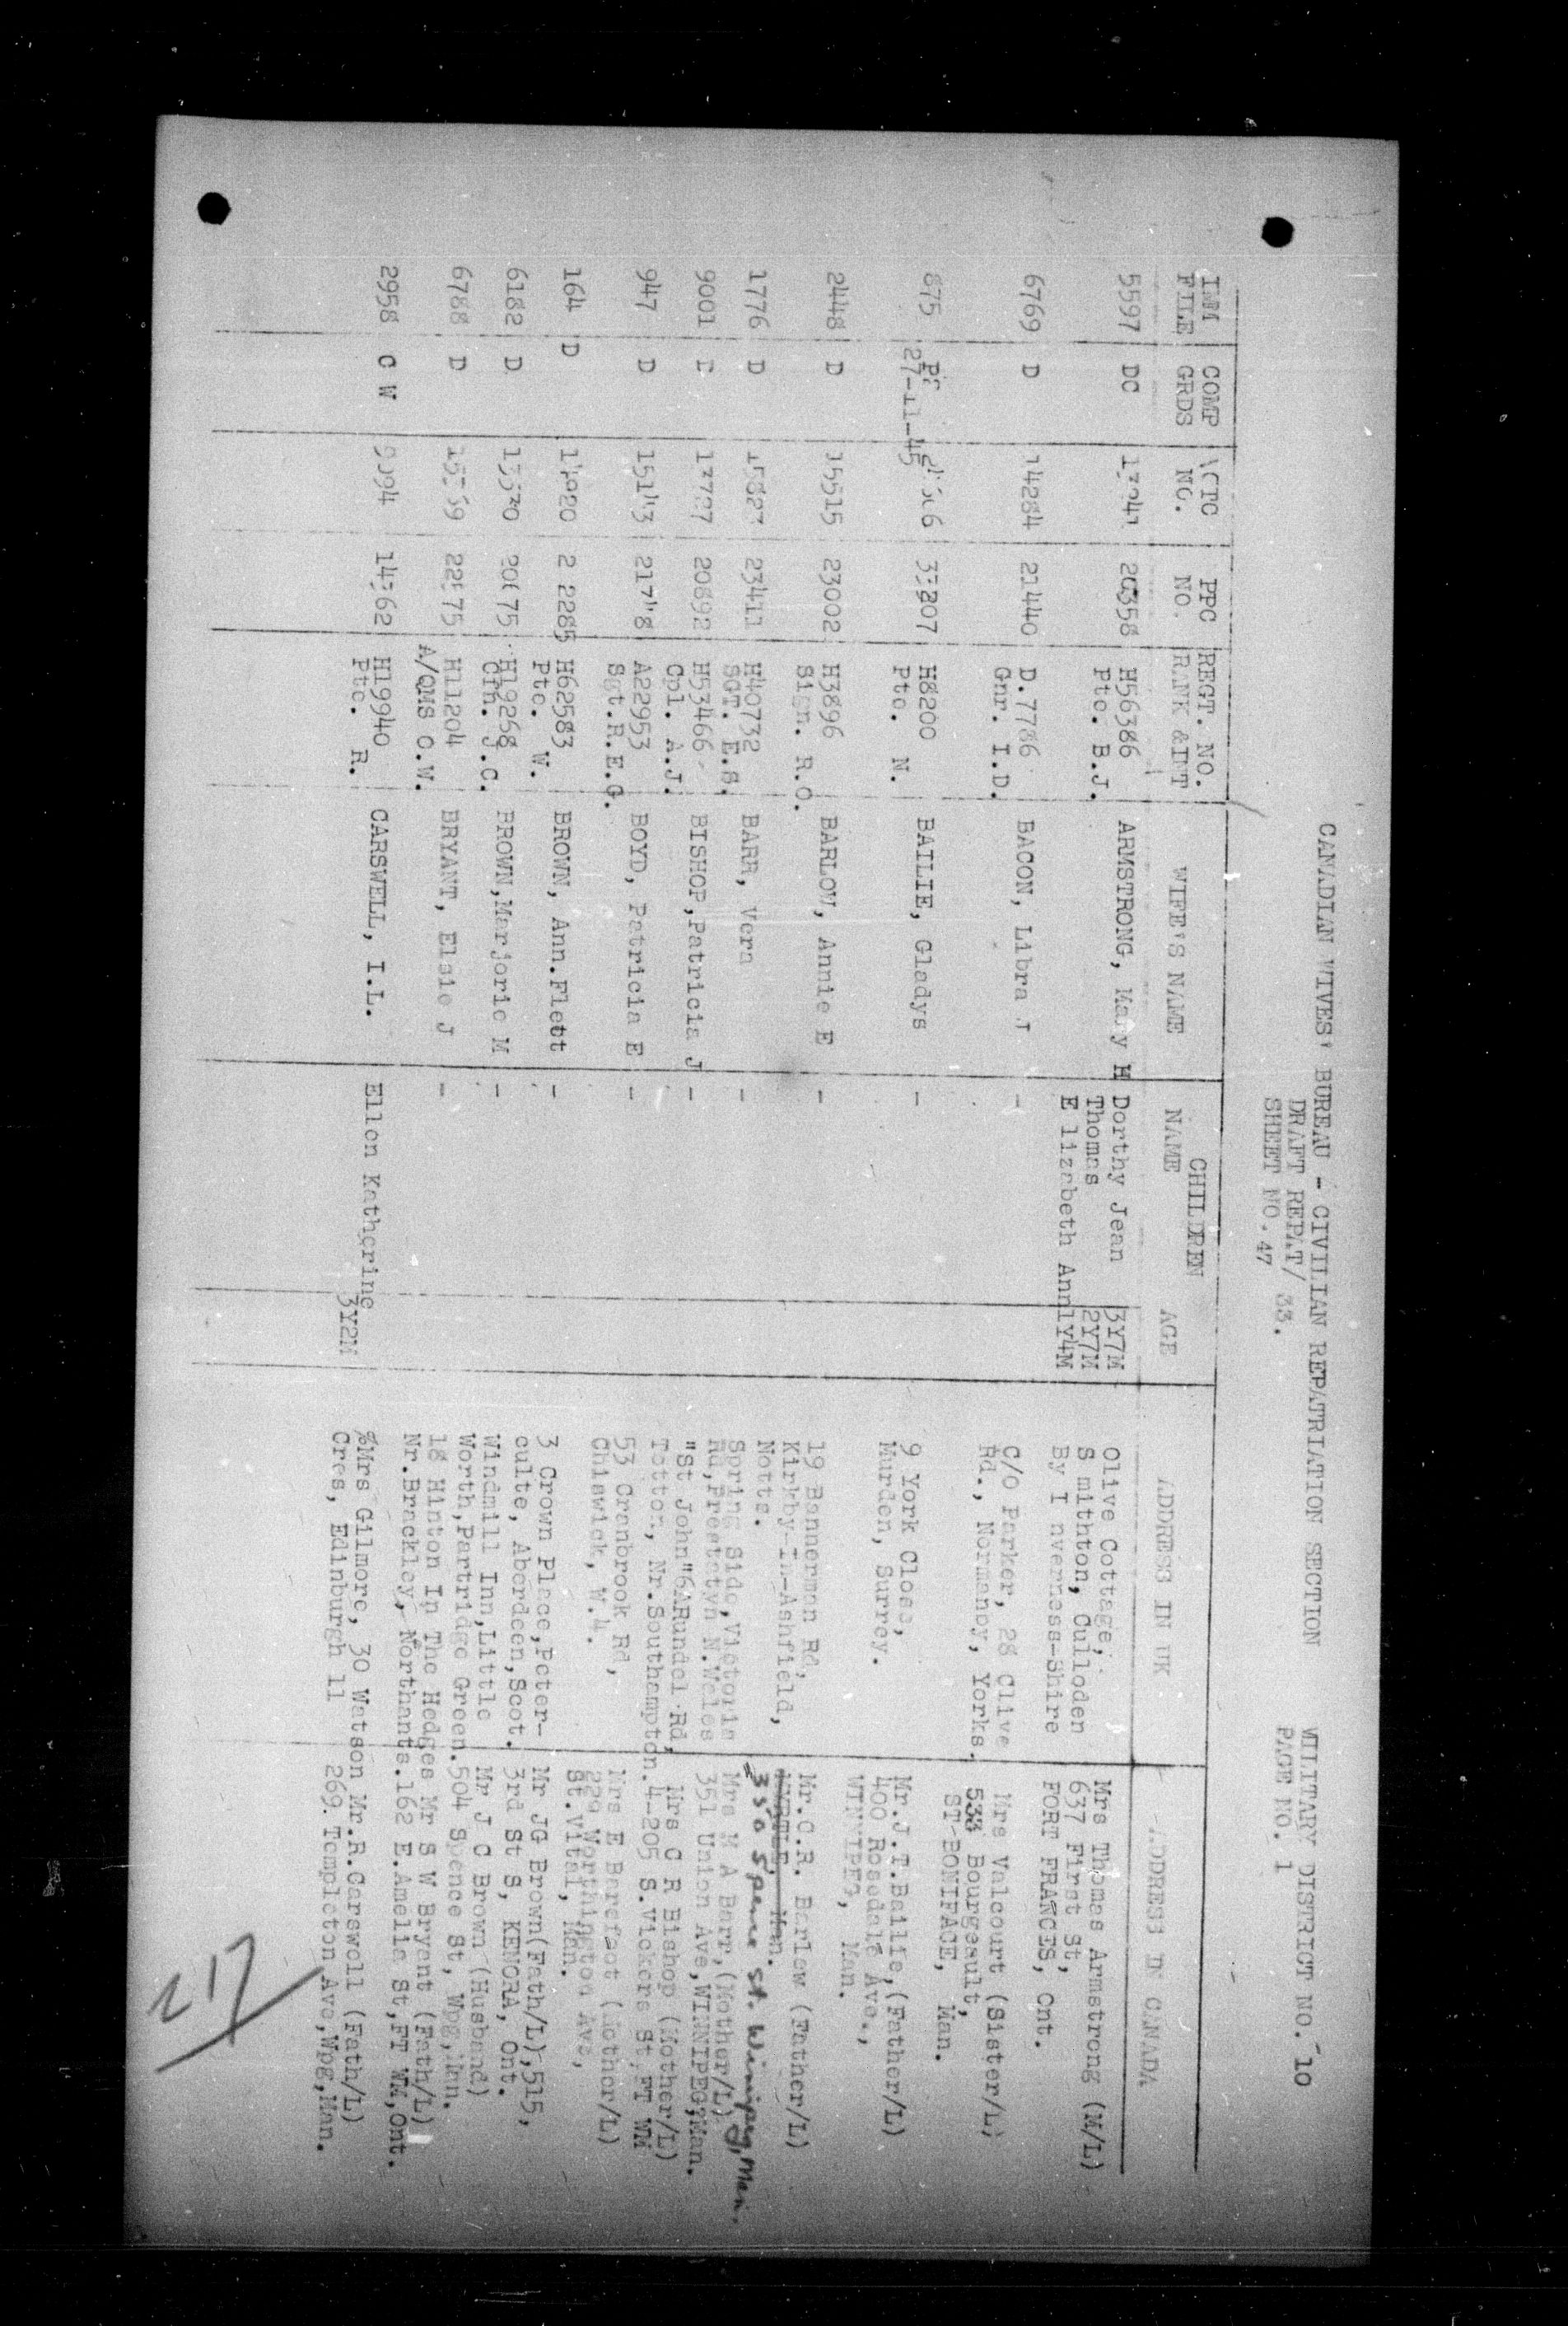 CANADIAN WIVES' BUREAU - CIVILIAN REPATRIATION SECTION MILITARY DISTRICT NO. 10
DRAFT REPAT/ 33. PAGE NO. 1
SHEET NO. 47
IMM FILE COMP GRDS NO. PPC NO. REGT. NO. RANK &INT WIFE'S NAME CHILDREN NAME AGE ADDRESS IN UK ADDRESS IN CANADA
5597 DC 20358 H56386 ARMSTRONG, Mary H Dorthy Jean 3Y7M Olive Cottage, Mrs Thomas Armstrong (M/L)
Pte. B.J. Thomas 2Y7M S mithton, Culloden 637 First St,
E lizabeth Ann 1Y4M By I nverness-Shire FORT FRANCES, Ont.
6769 D 14284 21440 D.7786 BACON, Libra J - C/O Parker, 28 Clive Mrs Valcourt (Sister/L)
Gnr. I.D. Rd., Normanby, Yorks. 533 Bourgeault,
ST-BONIFACE, Man.
875 27-11-45 H8200 BAILIE, Gladys - 9 York Close, Mr.J.T.Bailie,(Father/L)
Pte. N. Murden, Surrey. 400 Rosedale Ave.,
WINNIPEG, Man.
2448 D 15515 23002 H3896 BARLOW, Annie E - 19 Bannerman Rd, Mr.C.R. Barlow (Father/L)
Sign. R.O. Kirkby-In-Ashfield, MYRTLE, Man.
Notts. 350 Spence St. Winnipeg, Man.
1776 D 23411 H40732 BARR, Vera - Spring Side, Victoria Mrs M A Barr,(Mother/L)
SGT. E.S. Rd,Prestatyn N.Wales 351 Union Ave,WINNIPEG,Man.
9001 D 20892 H53466 BISHOP,Patricia J - "St John"6ARundel Rd, Mrs C R Bishop (Mother/L)
Cpl. A.J. Totton, Nr.Southampton. 4-205 S.Vickers St,FT WM
947 D 15143 21748 A22953 BOYD, Patricia E - 53 Cranbrook Rd, Mrs E Barefoot (Mother/L)
Sgt.R.E.G. Chiswick, W.4. 229 Worthington Ave,
St.Vital, Man.
164 D H62583 BROWN, Ann.Flett - 3 Crown Place,Peter- Mr JG Brown(Fath/L),515,
Pte. W. culte, Aberdeen,Scot. 3rd St S, KENORA, Ont.
6182 D H19268 BROWN,Marjorie M - Windmill Inn,Little Mr J C Brown (Husband)
Cfn. J.C. Worth,Partridge Green. 504 Spence St, Wpg,Man.
6788 D H11204 BRYANT, Elsie J - 18 Hinton In The Hedges Mr S W Bryant (Fath/L)
A/QMS C.W. Nr.Brackley, Northants. 162 E.Amelia St,FT WM,Ont.
2958 C W H19940 CARSWELL, I.L. Ellen Katherine 3Y2M %Mrs Gilmore, 30 Watson Mr.R.Carswell (Fath/L)
Pte. R. Cres, Edinburgh 11 269 Templeton Ave,Wpg,Man.